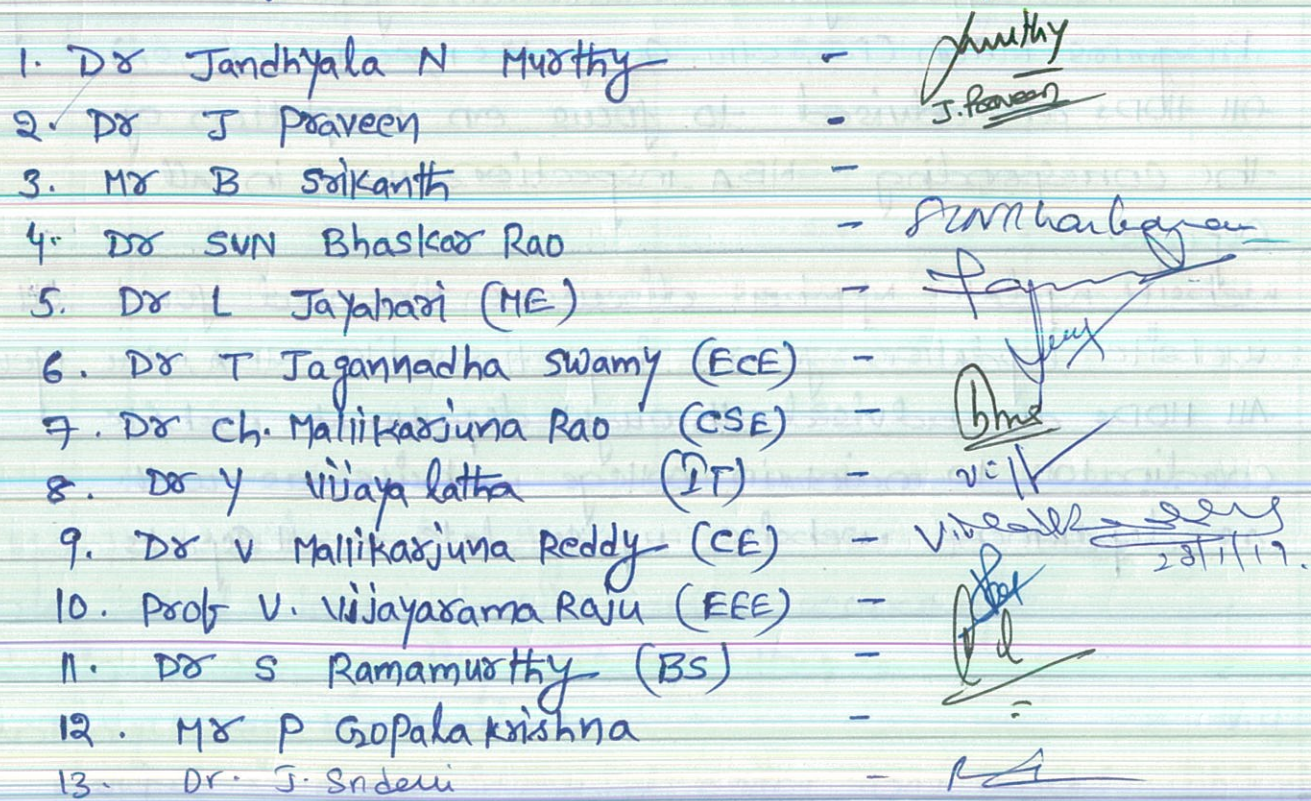 1. Dr Jandhyala N Murthy - Jmurthy
2. Dr J Praveen - J. Praveen
3. Mr B Srikanth -
4. Dr SVN Bhaskar Rao -
5. Dr L Jayahari (ME) -
6. Dr T Jagannadha Swamy (ECE) -
7. Dr Ch. Mallikarjuna Rao (CSE) -
8. Dr Y Vijaya latha (IT) -
9. Dr V Mallikarjuna Reddy (CE) - 23/1/19.
10. Prof V. Vijayarama Raju (EEE) -
11. Dr S Ramamurthy (BS) -
12. Mr P Gopala Krishna -
13. Dr. J. Sridevi -